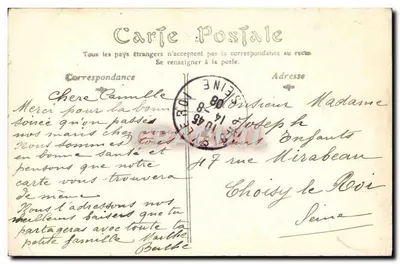 Carte Postale
Tous les pays étrangers n'acceptent pas la correspondance au recto
Se renseigner à la poste.
Correspondance
Adresse
Chere Camille
Merci pour la bonne
soirée qu'on
nos maris chez
Nous sommes tous
en bonne santé et
pensons que notre
carte vous trouvera
de même
Nous t'adressons nos
meilleurs baisers que tu
partageras avec toute la
petite famille Marthe
Berthe
Monsieur Madame
Joseph
Enfants
47 rue Mirabeau
Choisy le Roi
Seine
SEINE
10 45
14 -8
08